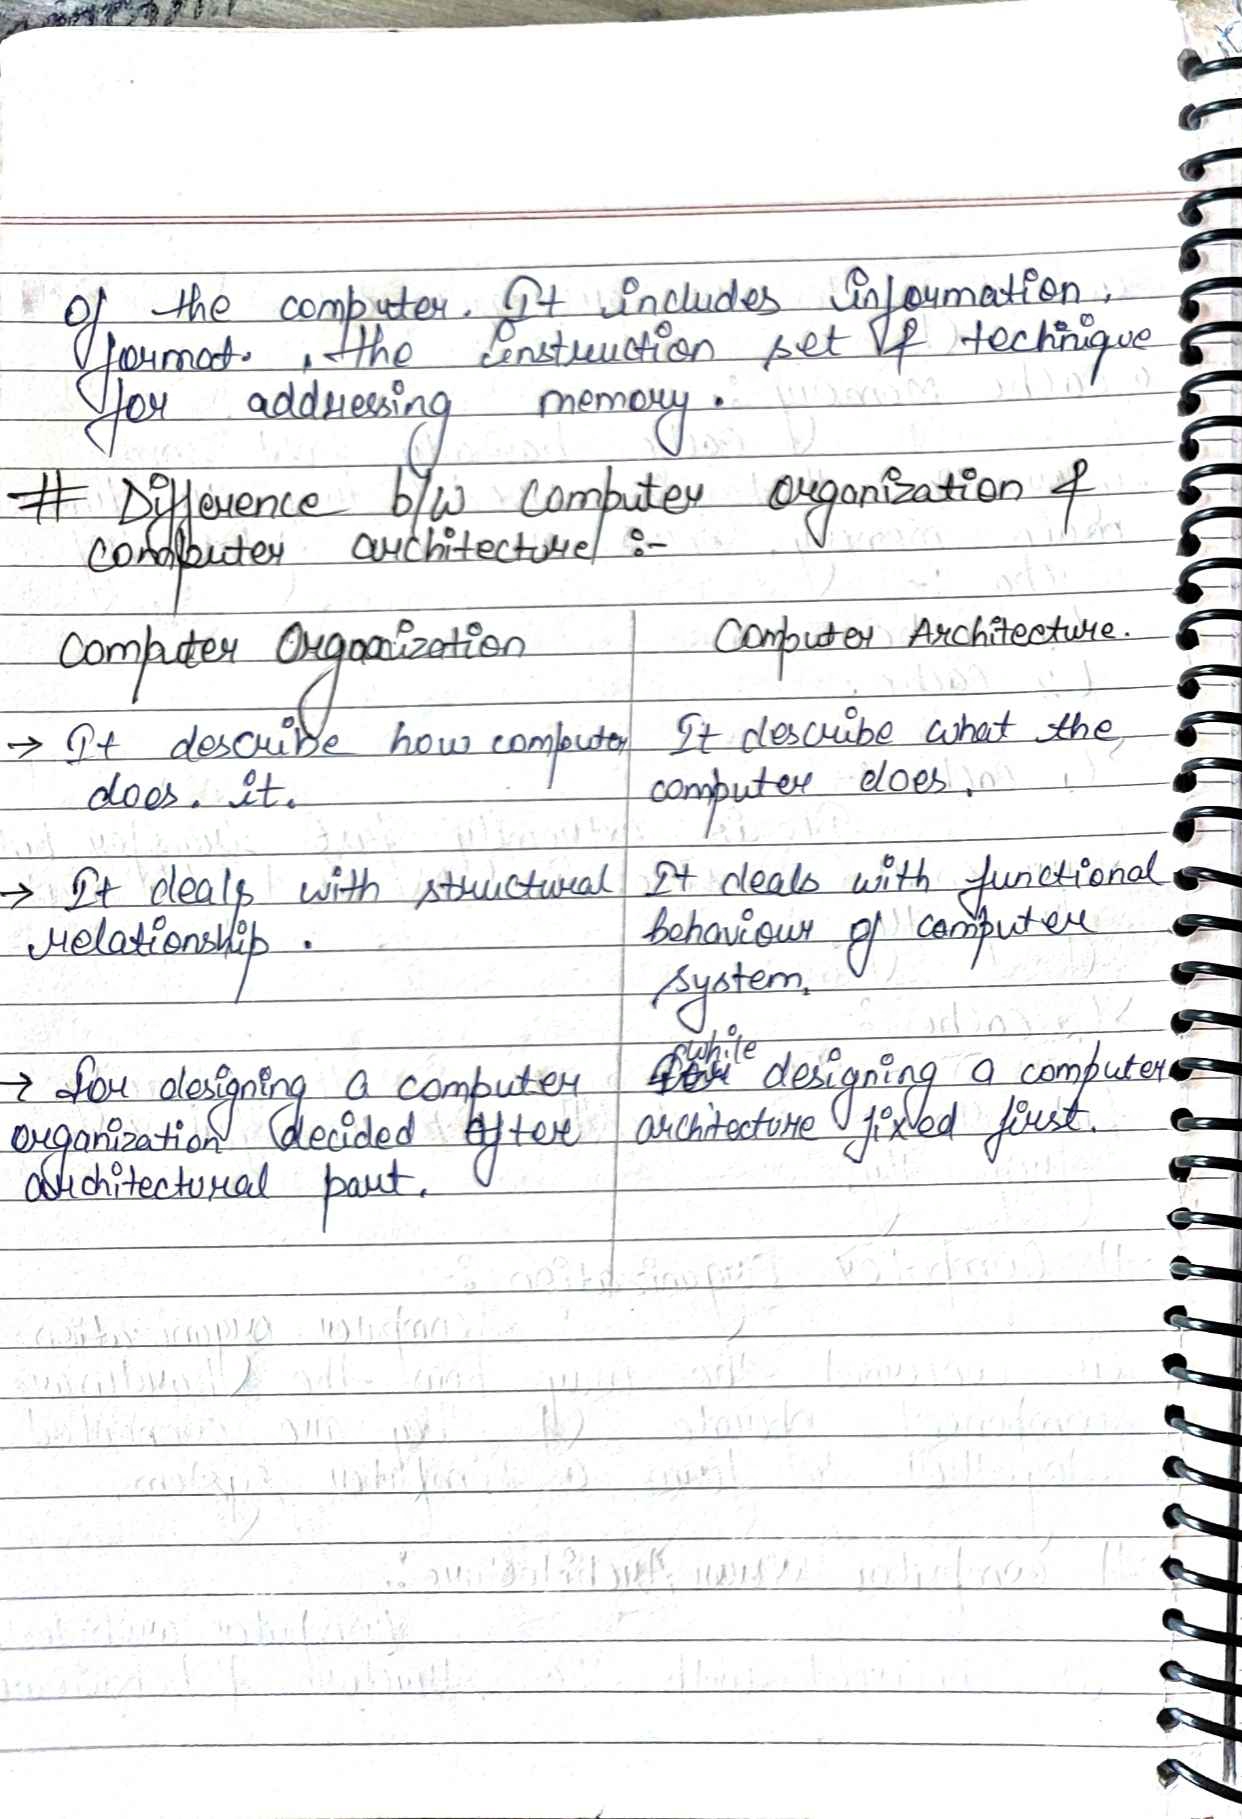 of the computer. It includes information,
format. , the instruction set & technique
for addressing memory.
# Difference b/w computer organization &
computer architecture :-
Computer Organization
Computer Architecture.
→ It describe how computer
does. it.
It describe what the
computer does.
→ It deals with structural
relationship.
It deals with functional
behaviour of computer
system.
→ for designing a computer
organization decided after
architectural part.
while
designing a computer
architecture fixed first.